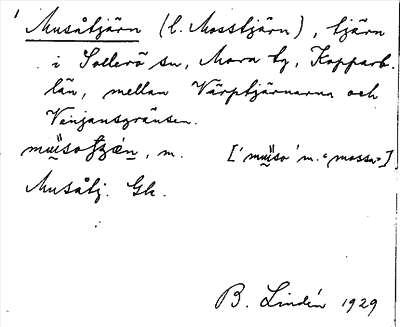 Musåtjärn (l. Mosstjärn), tjärn
i Sollerö sn, Mora tg, Kopparb.
län, mellan Värptjärnarna och
Venjansgränsen.
m. ['mɯ̈so' m. "mossa"]
Musåtj. Gk.
B. Lindén 1929